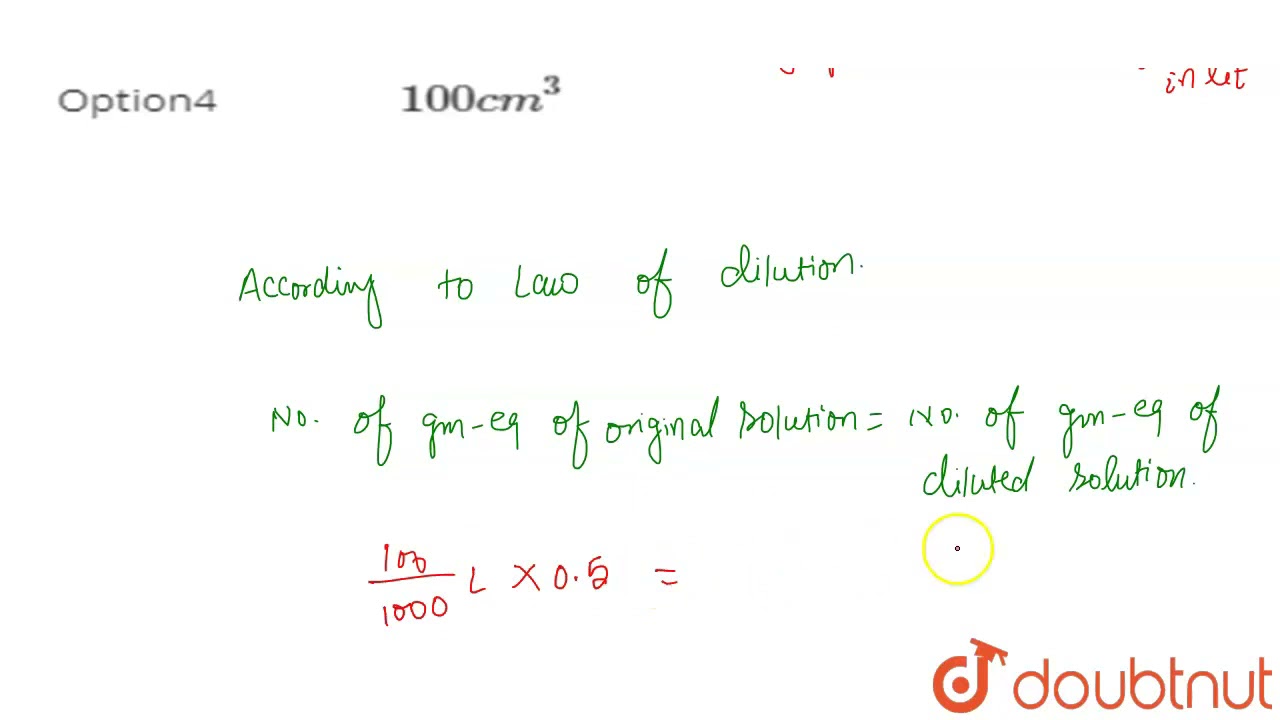 in let
Option4 100cm³
According to Law of dilution.
No. of gm-eq of original solution = No. of gm-eq of
diluted solution.
100/1000 L × 0.5 =
doubtnut